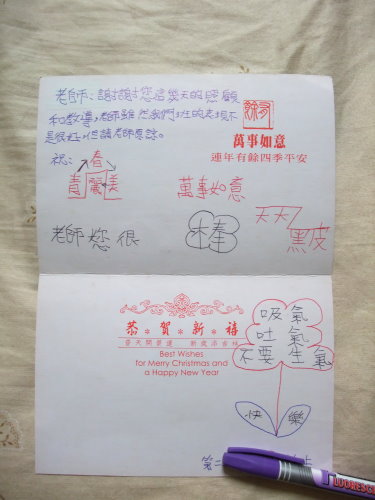 老師：謝謝您這幾天的照顧
和教導，老師雖然我們班的表現不
是很好，但請老師原諒。
祝：
春
青 麗 美
萬事如意
老師您很
棒
天天
黑皮
有餘
萬事如意
連年有餘四季平安
恭＊賀＊新＊禧
普天開景運 新歲添吉祥
Best Wishes
for Merry Christmas and
a Happy New Year
吸氣
吐氣
不要生氣
快樂
第二
FLUORESC